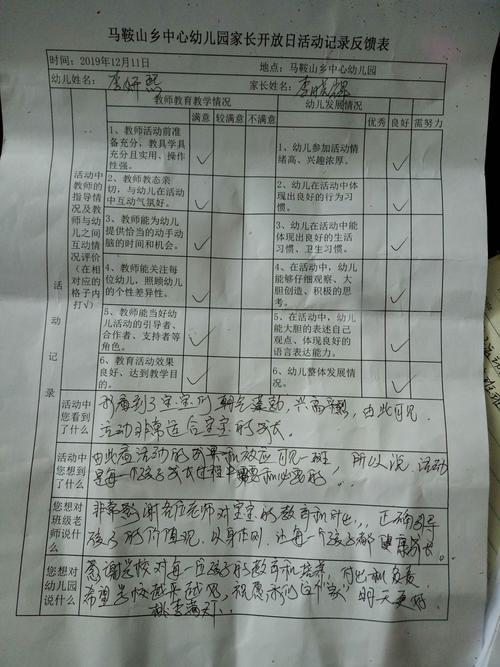 马鞍山乡中心幼儿园家长开放日活动记录反馈表
时间：2019年12月11日 地点：马鞍山乡中心幼儿园
幼儿姓名： 李妍熙 家长姓名：
教师教育教学情况 幼儿发展情况
满意 较满意 不满意 优秀 良好 需努力
活动记录
活动中教师的指导情况及教师与幼儿之间互动情况评价（在相对应的格子内打√）
1、教师活动前准备充分，教具学具充分且实用、操作性强。 ✓ 1、幼儿参加活动情绪高、兴趣浓厚。 ✓
2、教师教态亲切，与幼儿在活动中互动气氛好。 ✓ 2、幼儿在活动中体现出良好的行为习惯。 ✓
3、教师能为幼儿提供恰当的动手动脑的时间和机会。 ✓ 3、幼儿在活动中能体现出良好的生活习惯、卫生习惯。 ✓
4、教师能关注每位幼儿，照顾幼儿的个性差异性。 ✓ 4、在活动中，幼儿能够仔细观察、大胆创造、积极的思考。 ✓
5、教师能当好幼儿活动的引导者、合作者、支持者等角色。 ✓ 5、在活动中，幼儿能大胆的表述自己观点、体现良好的语言表达能力。 ✓
6、教育活动效果良好、达到教学目的。 ✓ 6、幼儿整体发展情况。 ✓
活动中您看到了什么
我看到了宝宝们朝气蓬勃，兴高采烈，由此可见
运动非常适合宝宝的成长
活动中您想到了什么
由此看活动的成果和效应可见一斑，所以说，活动
是每一个孩子成长过程中需要和必要的，
您想对班级老师说什么
非常感谢各位老师对宝宝的教育和付出，正确引导
孩子的价值观，以身作则，让每一个孩子都健康成长。
您想对幼儿园说什么
感谢学校对每一位孩子的教育和培养，付出和负责
希望学校越来越好，祝愿我们这个“家”明天更好，
桃李满天下...